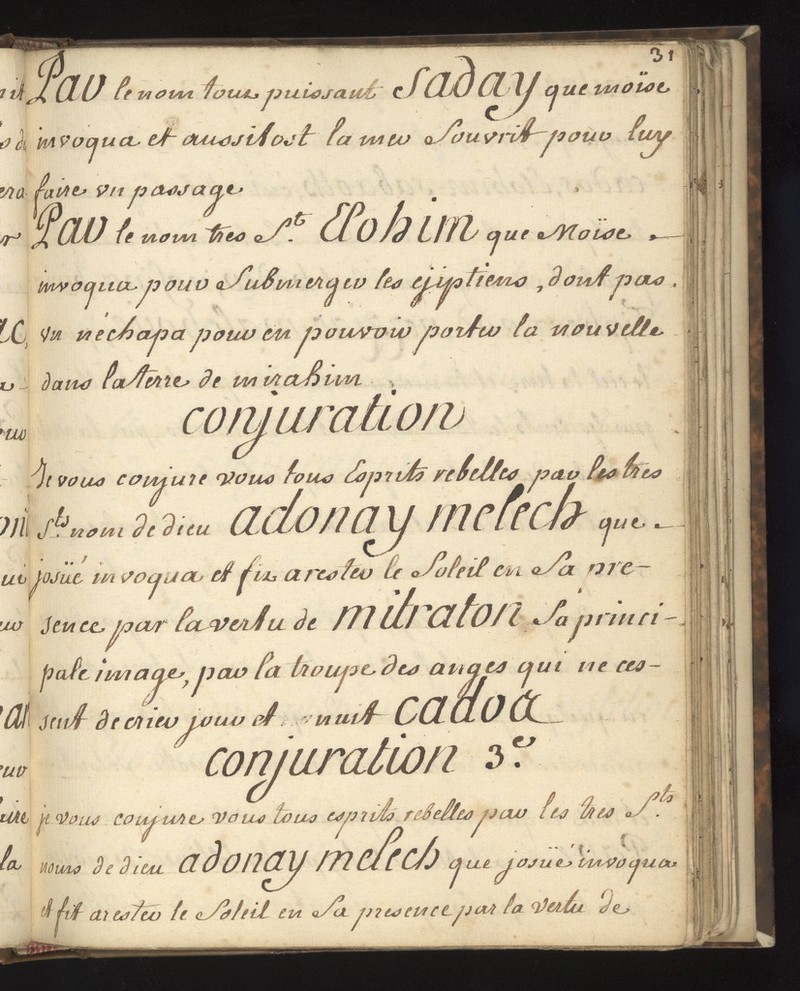 31
Par le nom tout puissant Saday que moïse
invoqua et aussitost la mer Souvrit pour luy
faire vn passage
Par le nom tres St. Elohim que Moïse
invoqua pour Submerger les ejiptiens, dont pas
vn néchapa pour en pouvoir porter la nouvelle
dans la terre de mirahim
conjuration
Je vous conjure vous tous Esprits rebelles par les tres
Sts. nom de dieu adonay melech que
josüé invoqua et fit arester le Soleil en Sa pre-
sence par la vertu de mitraton Sa princi-
pale image, par la troupe des anges qui ne ces-
sent de crier jour et nuit cadoa
conjuration 3e.
je vous conjure vous tous esprits rebelles par les tres Sts.
noms de dieu adonay melech que josüé invoqua
et fit arester le Soleil en Sa presence par la vertu de